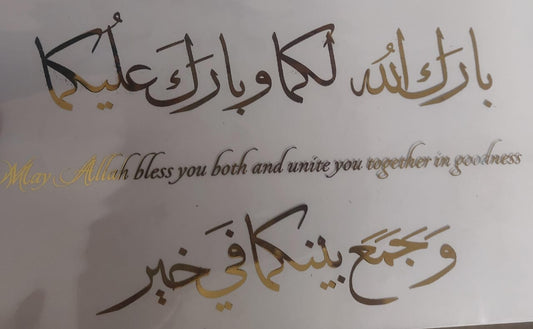 بارك الله لكما و بارَكَ عليُكما
May Allah bless you both and unite you together in goodness
وَ جَمَعَ بينكما فيَ خير